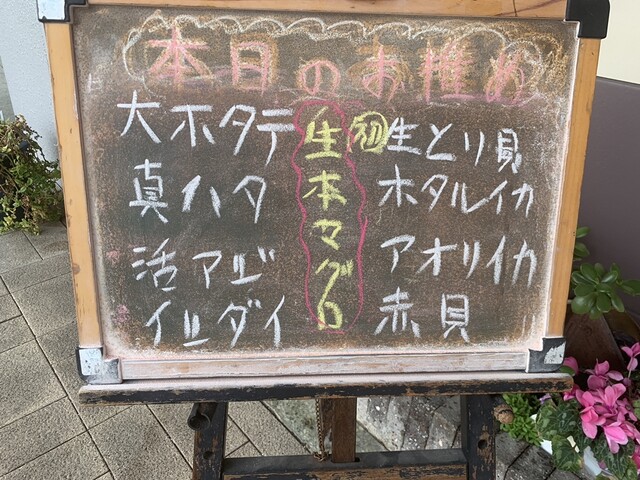 本日のお推め
大ホタテ
真ハタ
活アジ
イシダイ
生本マグロ
初生とり貝
ホタルイカ
アオリイカ
赤貝